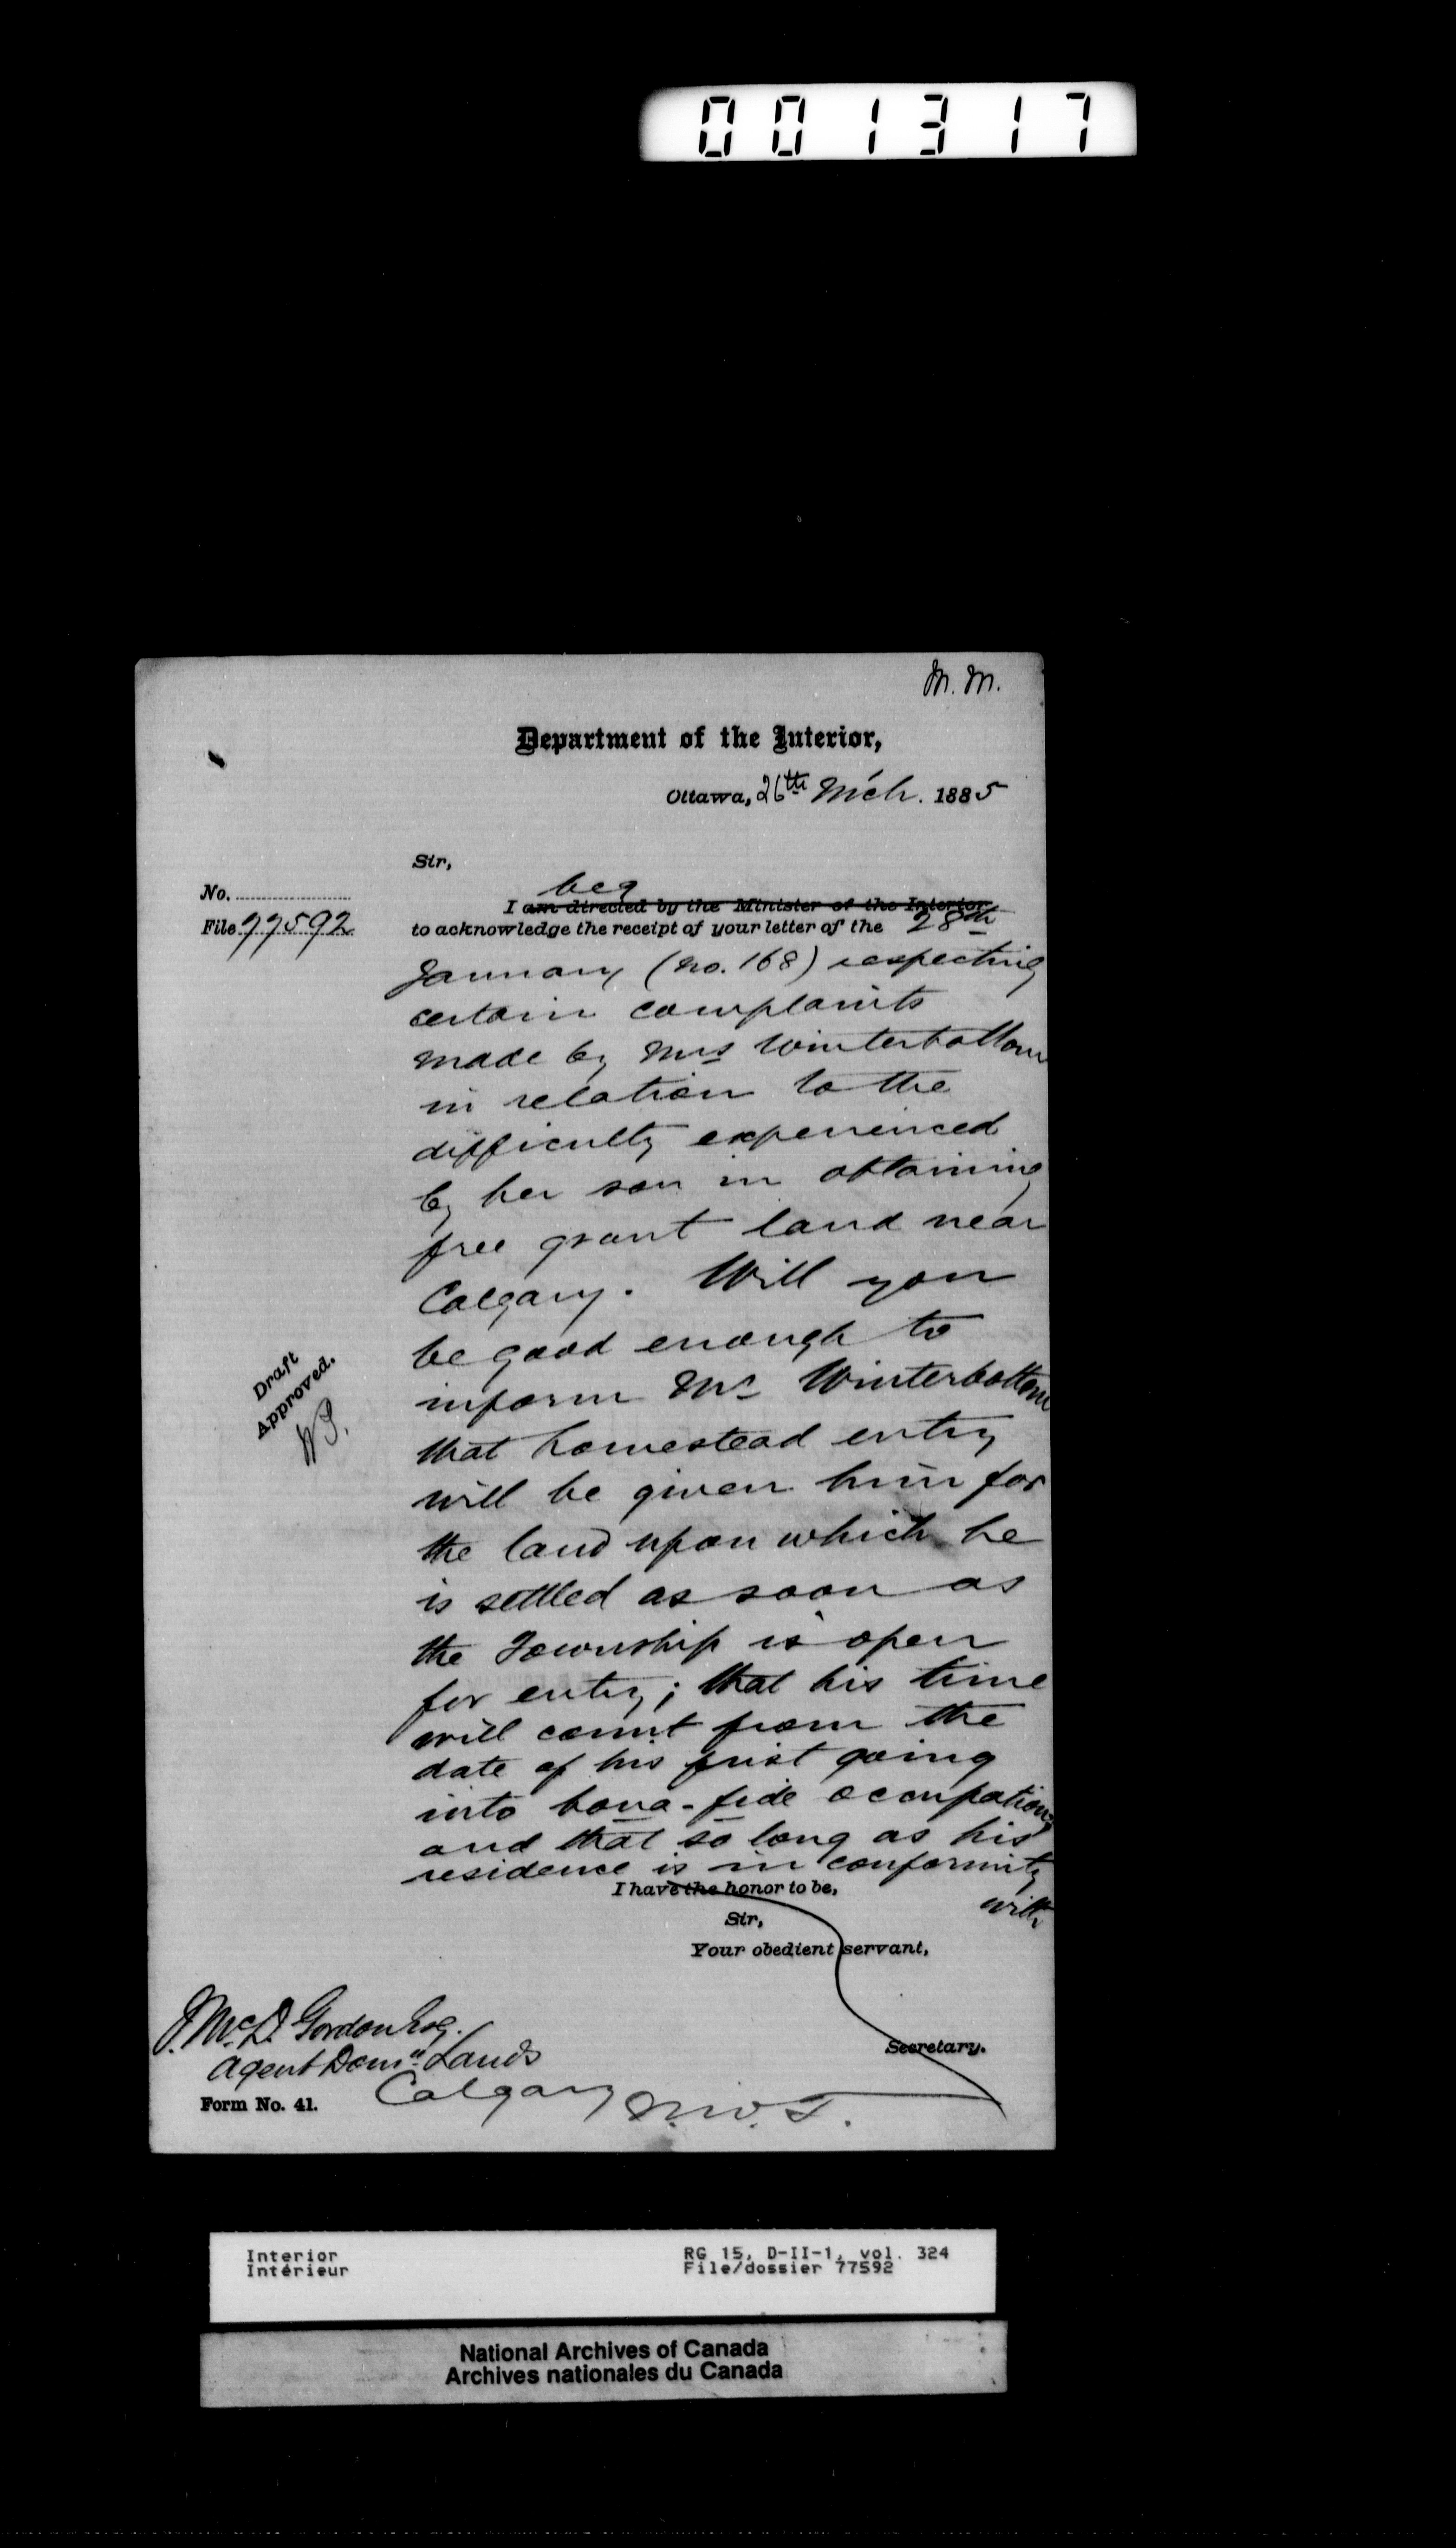 001317
M. M.
Department of the Interior,
Ottawa, 26th Mch. 1885
Sir,
No.
File 77592
beg
I am directed by the Minister of the Interior
to acknowledge the receipt of your letter of the 28th
January (No. 168) respecting
certain complaints
made by Mrs Winterbottom
in relation to the
difficulty experienced
by her son in obtaining
free grant land near
Calgary. Will you
be good enough to
inform Mr Winterbottom
that homestead entry
will be given him for
the land upon which he
is settled as soon as
the Township is open
for entry; that his time
will count from the
date of his first going
into bona-fide occupation,
and that so long as his
residence is in conformity
with
Draft
Approved.
I have the honor to be,
Sir,
Your obedient servant,
Secretary.
McD. Gordon Esq.
Agent Domn Lands
Calgary N.W.T.
Form No. 41.
Interior
Intérieur
RG 15, D-II-1, vol. 324
File/dossier 77592
National Archives of Canada
Archives nationales du Canada